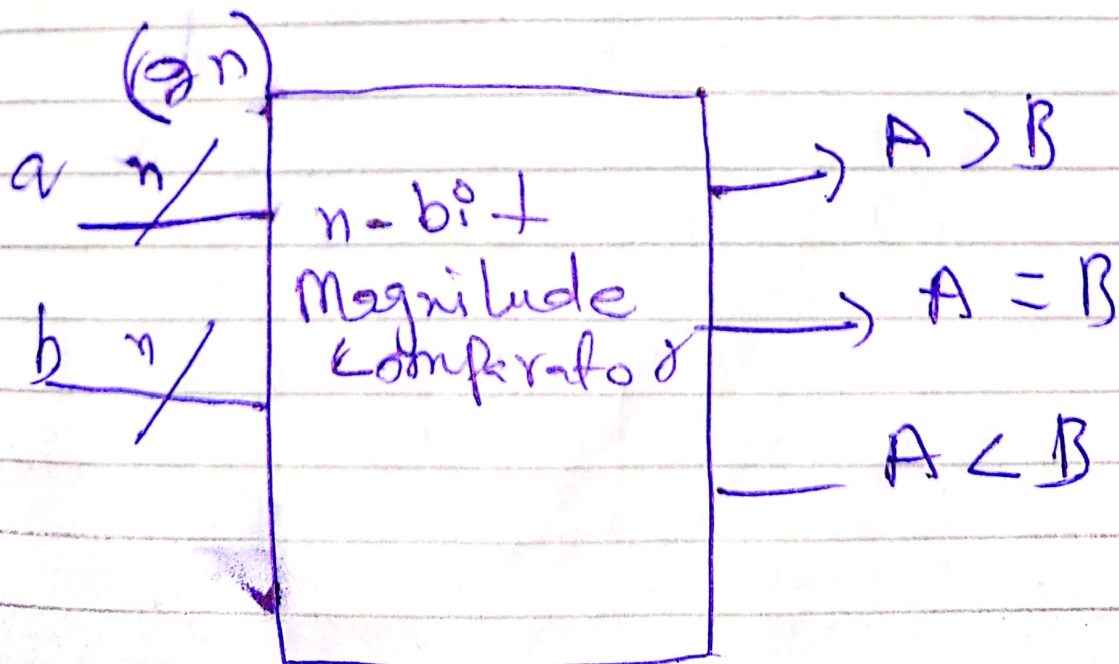 (2n)
a n
n-bit
Magnitude
comparator
b n
A > B
A = B
A < B